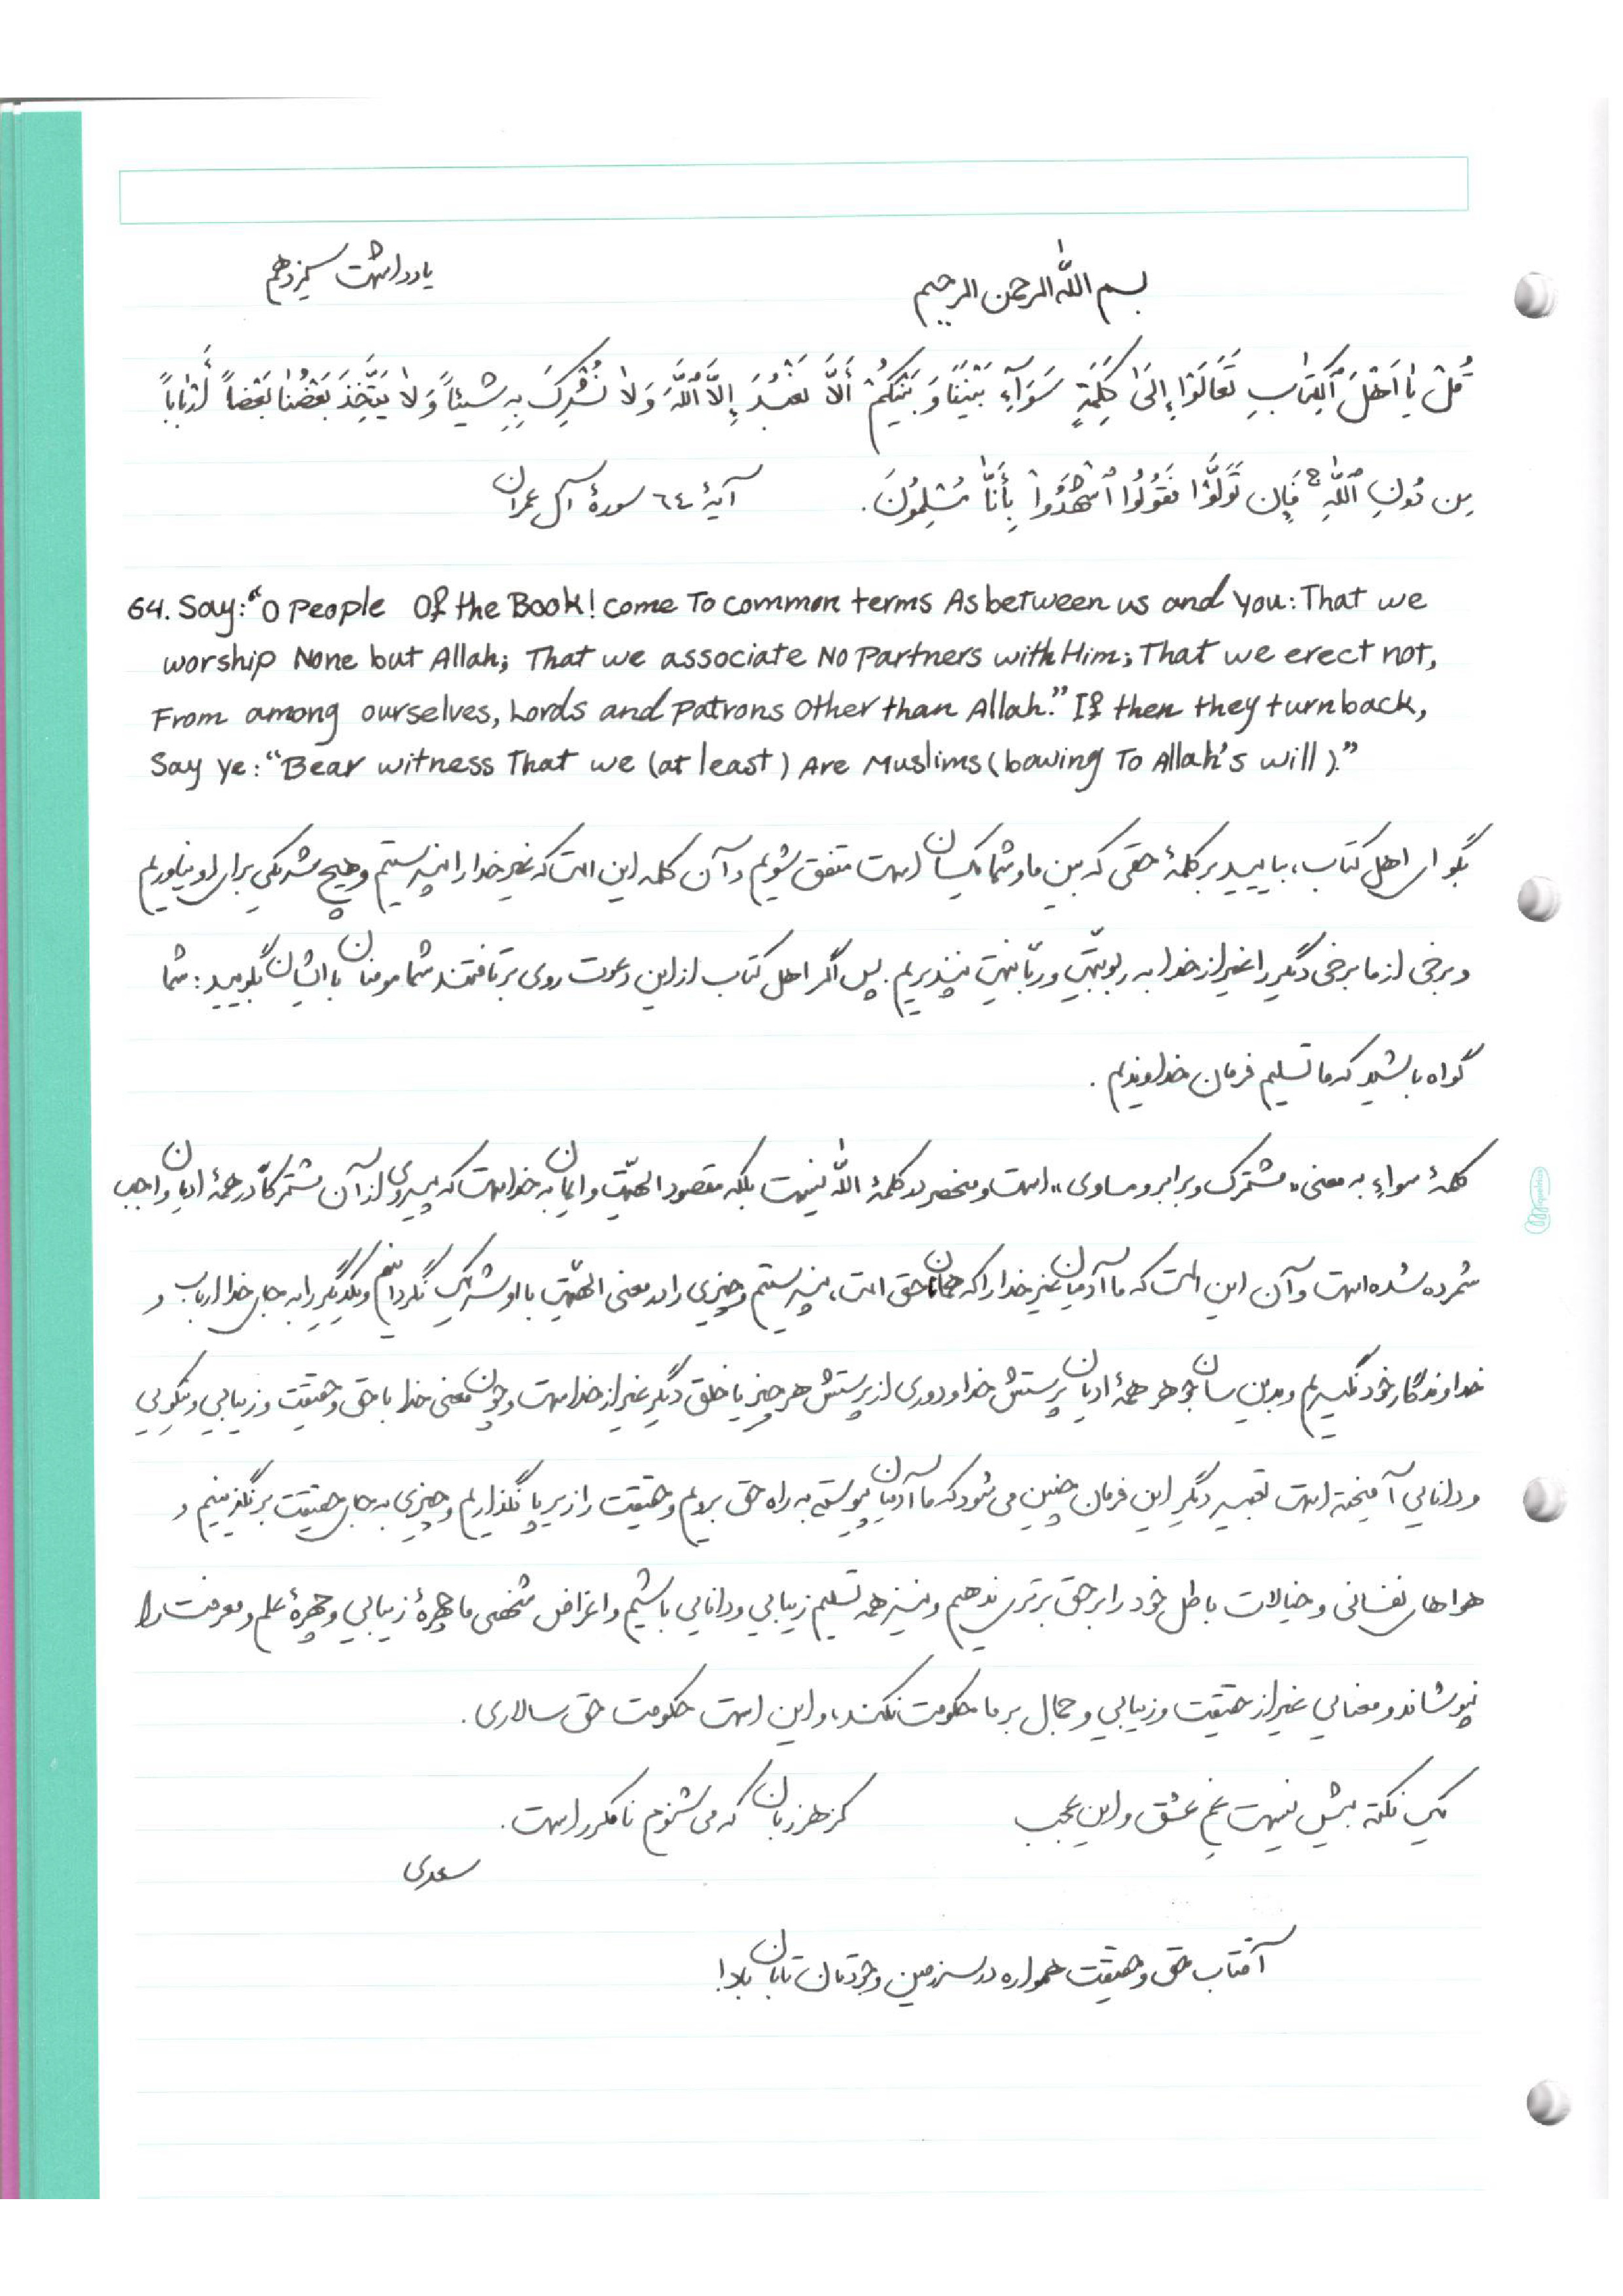 بسم الله الرحمن الرحیم
یادداشت سیزدهم
قُلْ يٰا اَهْلَ ٱلْكِتٰابِ تَعَالَوْا إِلَىٰ كَلِمَةٍ سَوَآءٍ بَيْنَنَا وَ بَيْنَكُمْ أَلَّا نَعْبُدَ إِلَّا ٱللَّهَ وَلاٰ نُشْرِكَ بِهِ شَيئاً وَلاٰ يَتَّخِذَ بَعْضُنٰا بَعْضاً أَرْبٰاباً
مِن دُونِ ٱللَّهِ ۚ فَإِن تَوَلَّوْا فَقُولُوا ٱشْهَدُوا بِأَنَّا مُسْلِمُونَ.
آیهٔ ٦٤ سورهٔ آل عمران
64. Say: "O People Of the Book! come To common terms As between us and you: That we
worship None but Allah; That we associate No Partners with Him; That we erect not,
From among ourselves, Lords and Patrons Other than Allah." If then they turn back,
Say ye: "Bear witness That we (at least) Are Muslims (bowing To Allah's will)."
بگو ای اهل کتاب، بیایید بر کلمهٔ حقی که بین ما و شما یکسان است متفق شویم و آن کلمه این است که غیر خدا را نپرستیم و هیچ شریکی برای او نیاوریم
و برخی از ما برخی دیگر را غیر از خدا به ربوبیّت و ربّانیت نپذیریم. پس اگر اهل کتاب از این دعوت روی برتافتند شما مومنان با ایشان بگویید: شما
گواه باشید که ما تسلیم فرمان خداوندیم.
کلمهٔ سواءٍ به معنی «مشترک و برابر و مساوی» است و منحصر در کلمهٔ اللّٰه نیست بلکه مقصود الهیّت و ایمان به خداست که پیروی از آن مشترکاً در همهٔ ادیان واجب
شمرده شده است و آن این است که ما آدمیان غیر خدا را که همانا حق است، نپرستیم و چیزی را در معنی الهیّت با او شریک نگردانیم و یکدیگر را به جای خدا ارباب و
خداوندگار خود نگیریم و بدین سان جوهر همهٔ ادیان پرستش خدا و دوری از پرستش هر چیز یا خلق دیگر غیر از خداست و چون معنی خدا با حق و حقیقت و زیبایی و نکویی
و دانایی آمیخته است تعبیر دیگر این فرمان چنین می شود که ما آدمیان پیوسته به راه حق برویم و حقیقت را زیر پا نگذاریم و چیزی به جای حقیقت برنگزینیم و
هواهای نفسانی و خیالات باطل خود را بر حق برتری ندهیم و نیز همه تسلیم زیبایی و دانایی باشیم و اغراض شخصی ما چهرهٔ زیبایی و چهرهٔ علم و معرفت را
نپوشاند و معنایی غیر از حقیقت و زیبایی و جمال بر ما حکومت نکند، و این است حکومت حق سالاری.
یک نکته بیش نیست غم عشق و این عجب
کز هر زبان که می شنوم نامکرر است.
سعدی
آفتاب حق و حقیقت همواره در سرزمین وجودتان تابان باد!